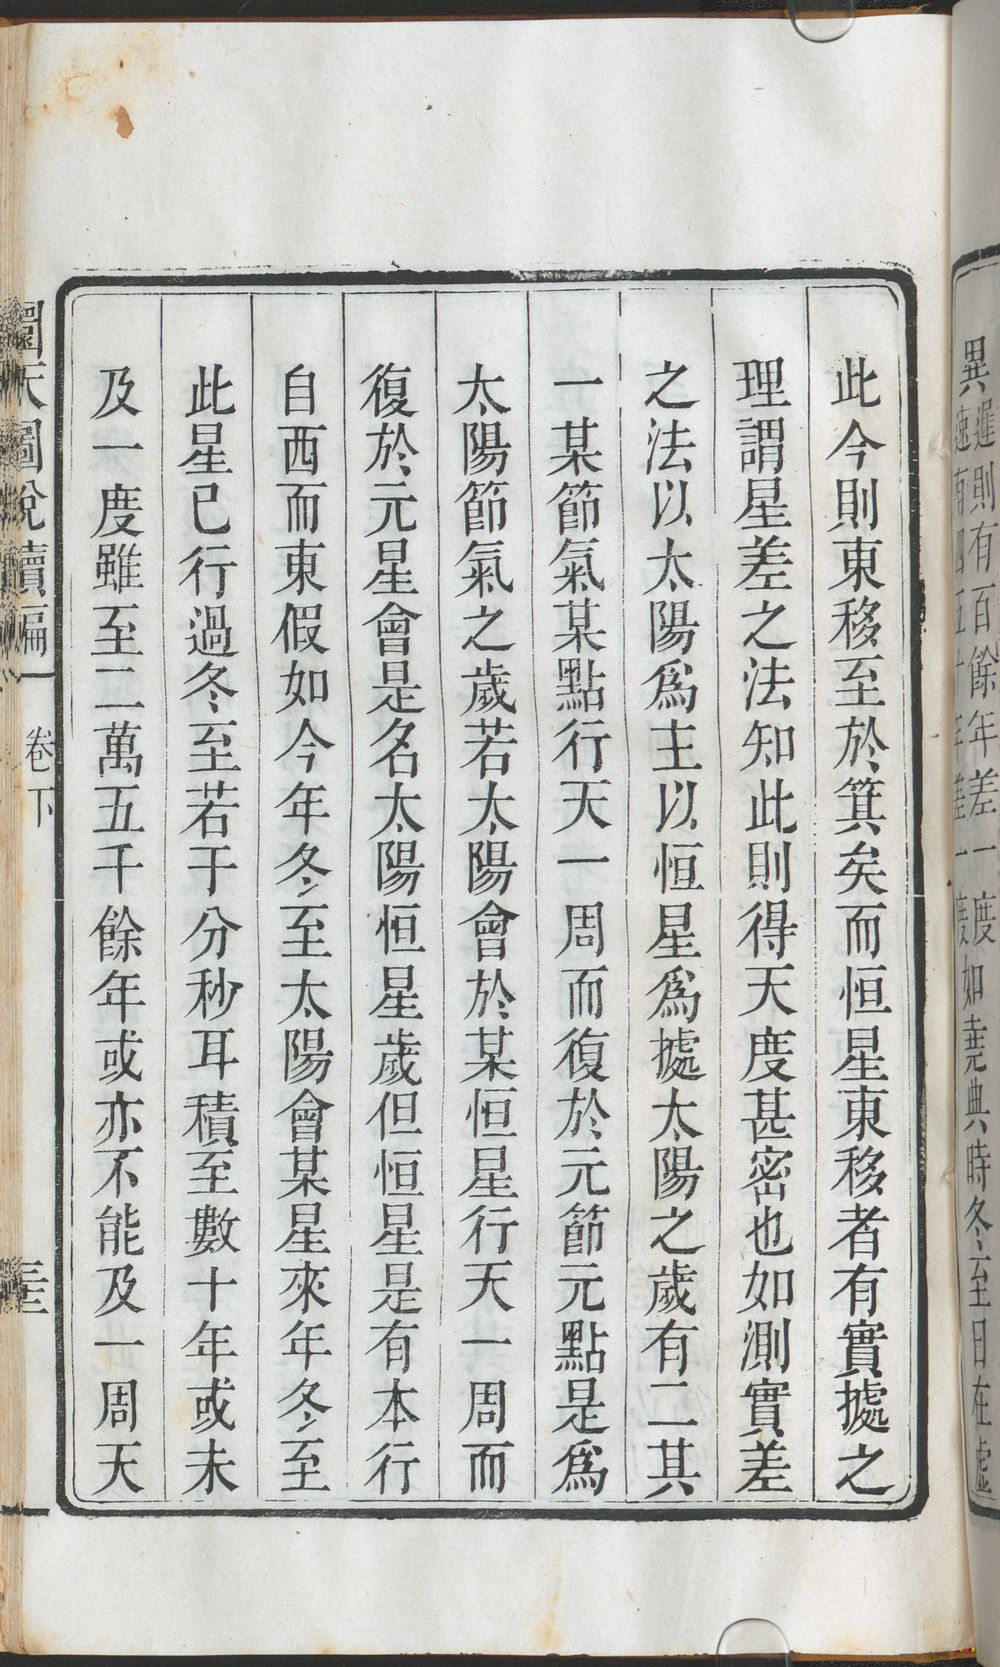 異遲則有百餘年差一度
速有四五十年差一度如堯典時冬至日在虛
此今則東移至於箕矣而恒星東移者有實據之
理謂星差之法知此則得天度甚密也如測實差
之法以太陽爲主以恒星爲據太陽之歲有二其
一某節氣某點行天一周而復於元節元點是爲
太陽節氣之歲若太陽會於某恒星行天一周而
復於元星會是名太陽恒星歲但恒星是有本行
自西而東假如今年冬至太陽會某星來年冬至
此星已行過冬至若干分秒耳積至數十年或未
及一度雖至二萬五千餘年或亦不能及一周天
圜天圖說續編
卷下